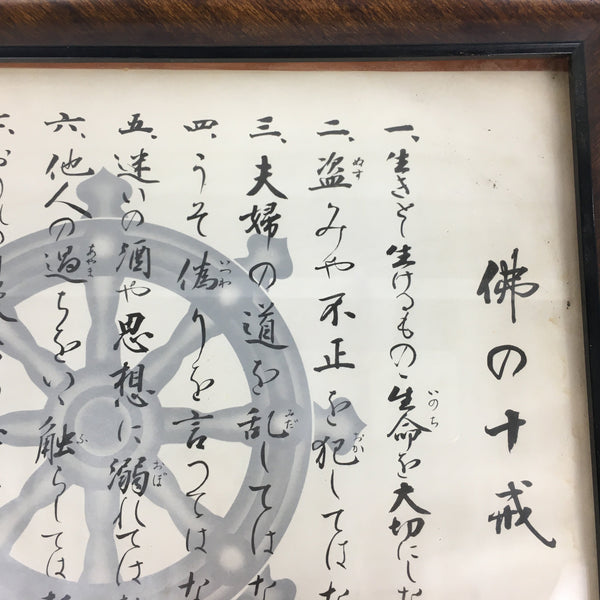 佛の十戒
一、生きとし生けるもの丶生命を大切にしな
二、盗みや不正を犯してはな
三、夫婦の道を乱してはな
四、うそ偽りを言つてはな
五、迷いの酒や思想に溺れてはな
六、他人の過ちをいゝ触らしては